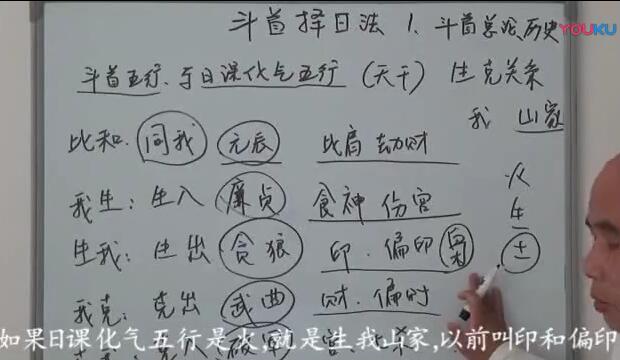 斗首择日法 1、斗首总论、历史
YOUKU
斗首五行、与日课化气五行 (天干) 生克关系
我 山家
比和: 同我 元辰 比肩 劫财
我生: 生入 廉贞 食神 伤官
火
生
土
生我: 生出 贪狼 印、偏印
我克: 克出 武曲 财、偏财
如果日课化气五行是火,就是生我山家,以前叫印和偏印